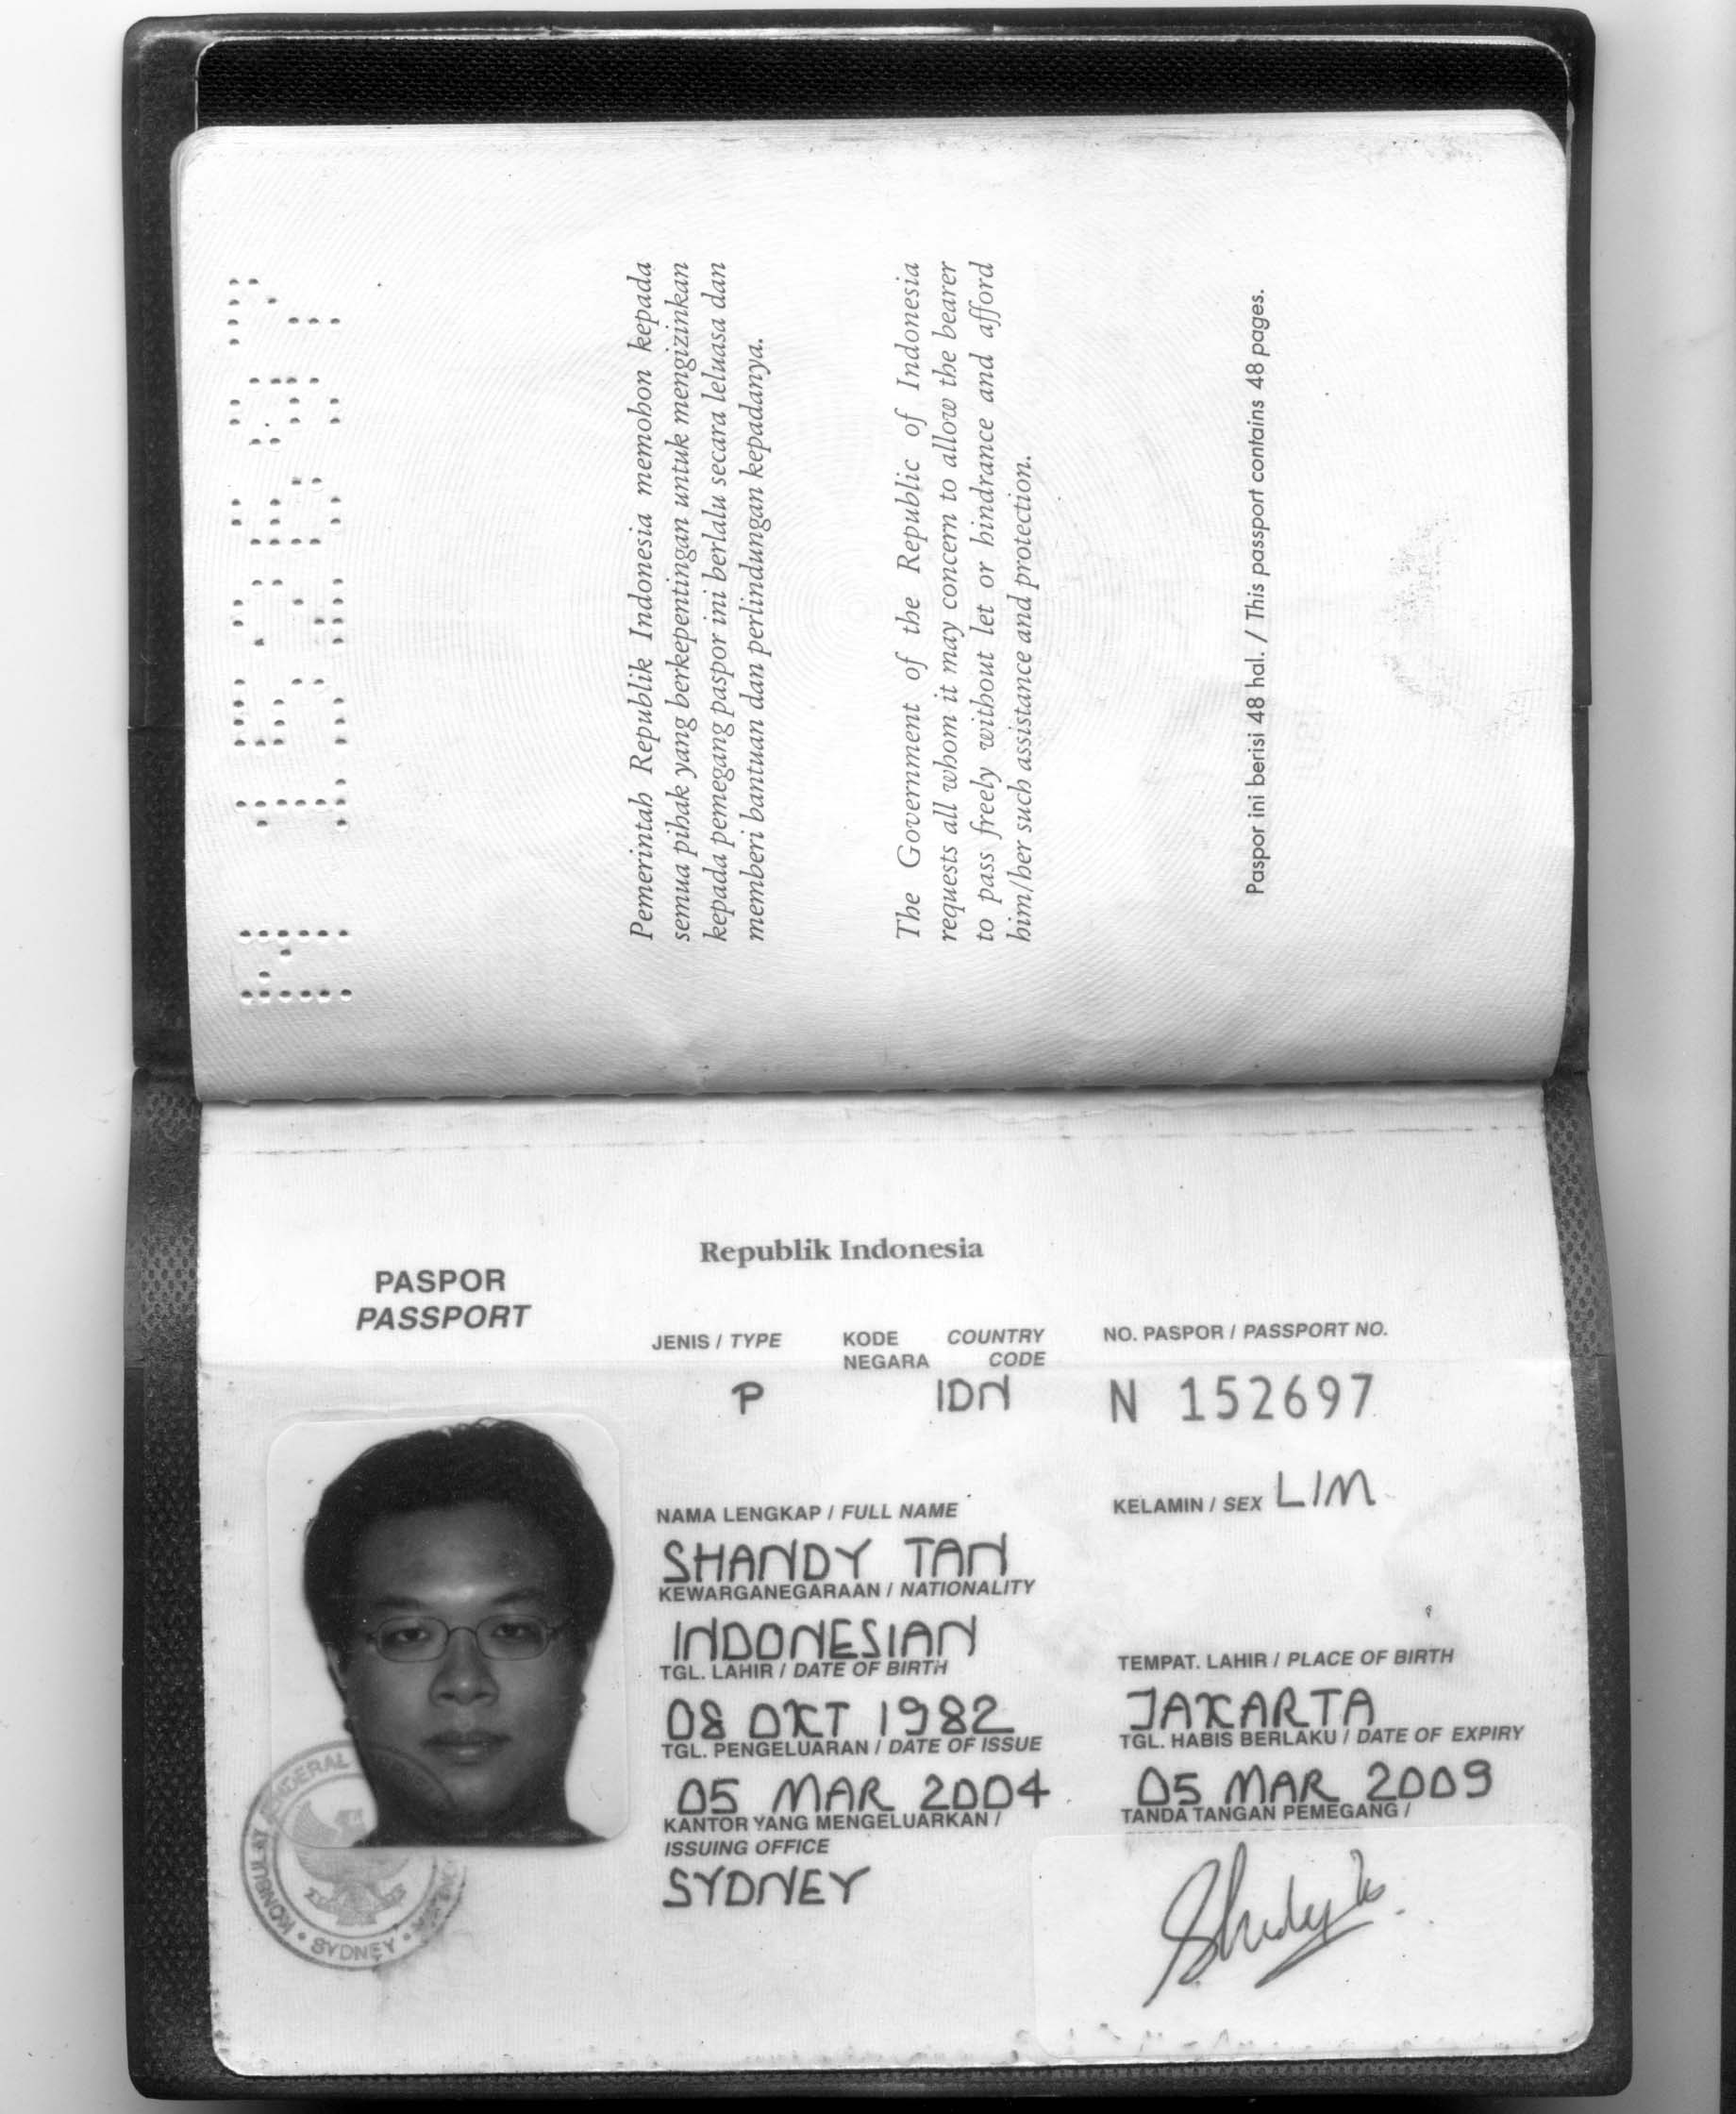 N 152697
Pemerintah Republik Indonesia memohon kepada
semua pihak yang berkepentingan untuk mengizinkan
kepada pemegang paspor ini berlalu secara leluasa dan
memberi bantuan dan perlindungan kepadanya.
The Government of the Republic of Indonesia
requests all whom it may concern to allow the bearer
to pass freely without let or hindrance and afford
him/her such assistance and protection.
Paspor ini berisi 48 hal. / This passport contains 48 pages.
Republik Indonesia
PASPOR
PASSPORT
JENIS / TYPE
P
KODE COUNTRY
NEGARA CODE
IDN
NO. PASPOR / PASSPORT NO.
N 152697
NAMA LENGKAP / FULL NAME
SHANDY TAN
KELAMIN / SEX LIM
KEWARGANEGARAAN / NATIONALITY
INDONESIAN
TGL. LAHIR / DATE OF BIRTH
08 OKT 1982
TEMPAT. LAHIR / PLACE OF BIRTH
JAKARTA
TGL. PENGELUARAN / DATE OF ISSUE
05 MAR 2004
TGL. HABIS BERLAKU / DATE OF EXPIRY
05 MAR 2009
KANTOR YANG MENGELUARKAN /
ISSUING OFFICE
SYDNEY
TANDA TANGAN PEMEGANG /
JENDERAL
SYDNEY